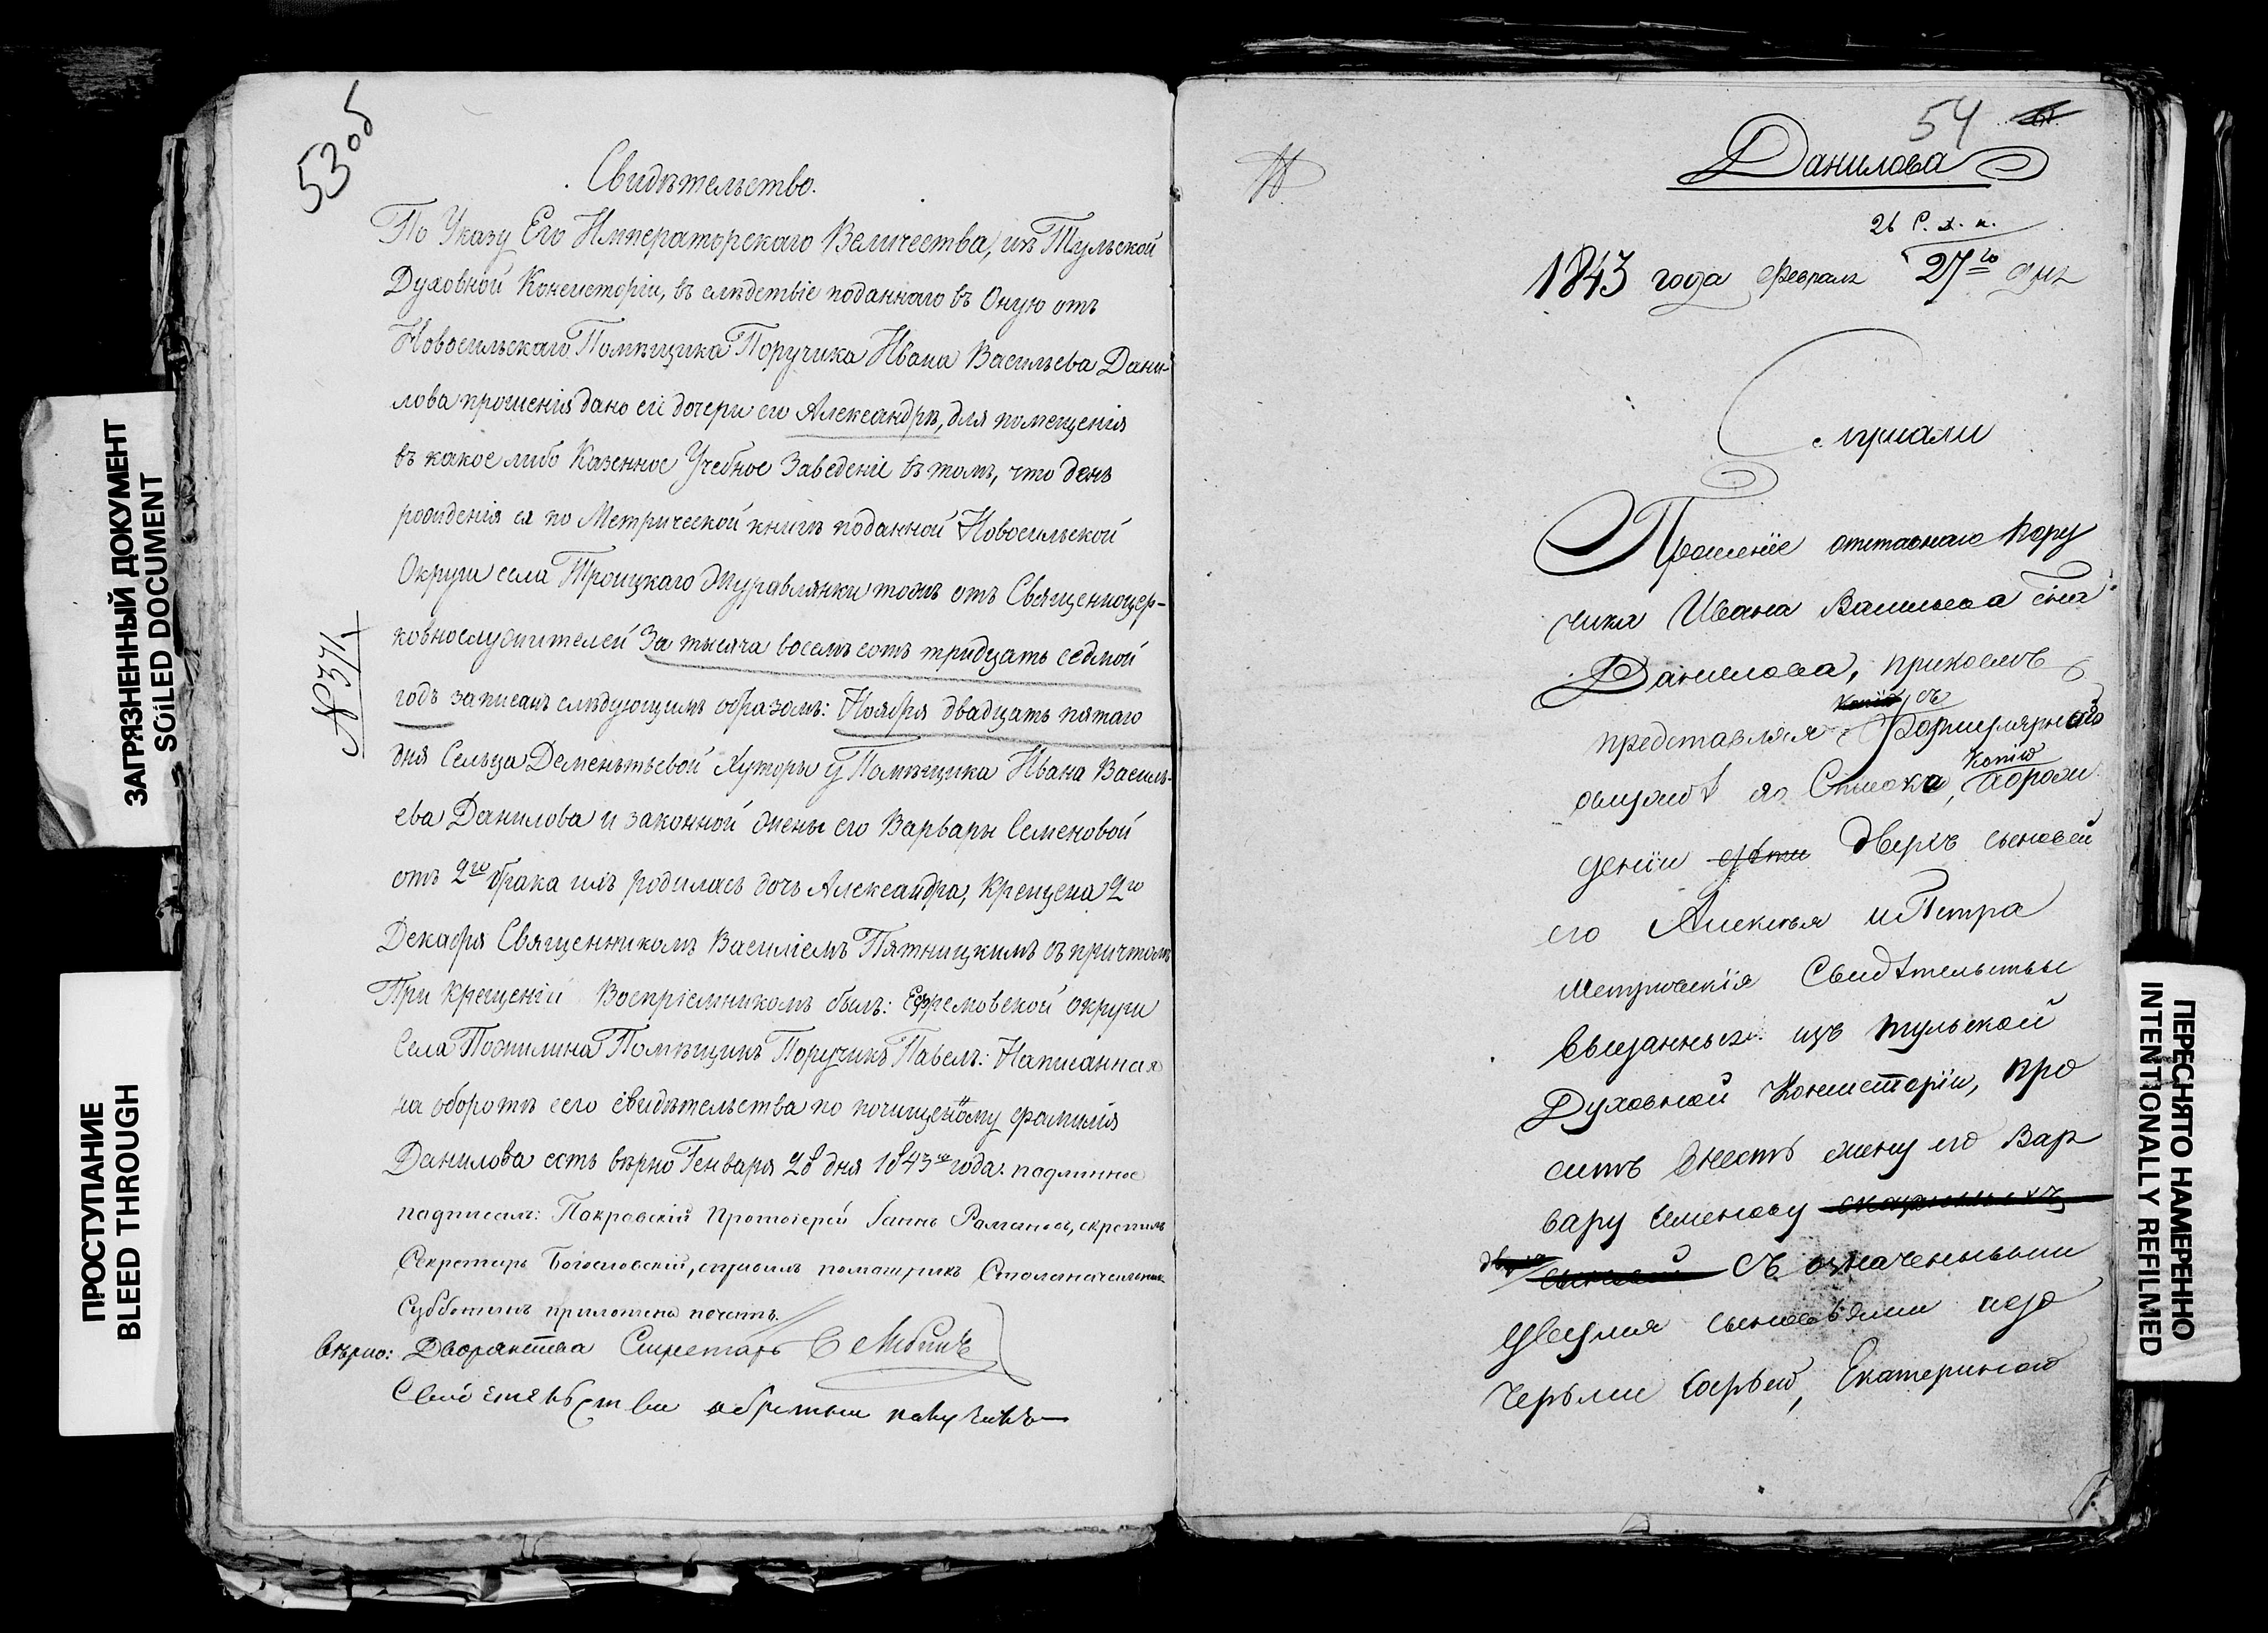 53 об
Свидѣтельство.
По Указу Его Императорскаго Величества, изъ Тульской
Духовной Консисторіи, въ слѣдствіе поданнаго въ Оную отъ
Новосильскаго Помѣщика Поручика Ивана Васильева Дани-
лова прошенія дано сіе дочери его Александрѣ, для помещенія
въ какое либо Казенное Учебное Заведеніе въ томъ, что день
рожденія ея по Метрической книгѣ поданной Новосильской
Округи села Троицкаго Журавлянки тожъ отъ Священноцер-
ковнослужителей За тысяча восемь сотъ тридцать седмой
годъ записанъ слѣдующимъ образомъ: Ноября двадцать пятаго
дня Сельца Деменьтьевой Хуторы у Помѣщика Ивана Василь-
ева Данилова и законной жены его Варвары Семеновой
отъ 2го брака ихъ родилась дочь Александра, крещена 2го
Декабря Священникомъ Василіемъ Пятницкимъ съ причтомъ
При Крещеніи Воспріемникомъ былъ: Ефремовской округи
Села Пожилина Помѣщикъ Поручикъ Павелъ: Написанная
на оборотѣ сего свидѣтельства по почищеному фамилія
Данилова есть вѣрно Генваря 28 дня 1843го года: подлинное
подписалъ: Покровскій Протоіерей Іаннъ Романовъ, скрепилъ
Секретарь Богословскій, справилъ помощникъ Столоначальника
Субботинъ приложена печать.
№ 371
вѣрно: Дворянства Секретарь
Свидетельства обратно получилъ
54
Данилова
26 С. д. к.
1843 года февраля 27го дня
Слушали
Прошеніе отставнаго Пору
чика Ивана Васильева сна
Данилова, прикоемъ
Копію съ
представляя Формулярнаго
Копію
о службѣ его Списка, о рож
деніи дѣти двухъ сыновей
его Алексѣя и Петра
метрическія Свидѣтельствы
выданныя изъ тульской
Духовной Консисторіи, про
ситъ внесть жену его Вар
вару Семенову
съ означенными
двумя сыновьями и до
черьми Софьею, Екатериною
ЗАГРЯЗНЕННЫЙ ДОКУМЕНТ
SOILED DOCUMENT
ПРОСТУПАНИЕ
BLEED THROUGH
ПЕРЕСНЯТО НАМЕРЕННО
INTENTIONALLY REFILMED